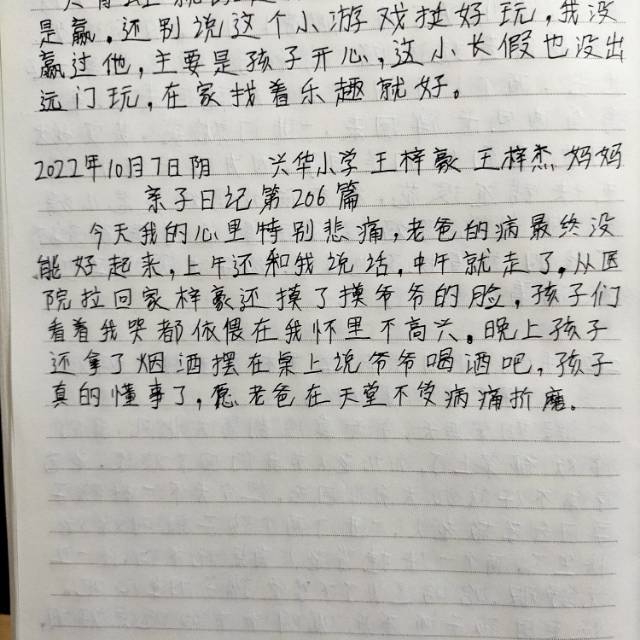 是赢。还别说这个小游戏挺好玩,我没
赢过他,主要是孩子开心,这小长假也没出
远门玩,在家找着乐趣就好。
2022年10月7日阴 兴华小学王梓豪 王梓杰妈妈
亲子日记第206篇
今天我的心里特别悲痛,老爸的病最终没
能好起来,上午还和我说话,中午就走了。从医
院拉回家梓豪还摸了摸爷爷的脸,孩子们
看着我哭都依偎在我怀里不高兴。晚上孩子
还拿了烟酒摆在桌上说爷爷喝酒吧,孩子
真的懂事了,愿老爸在天堂不受病痛折磨。